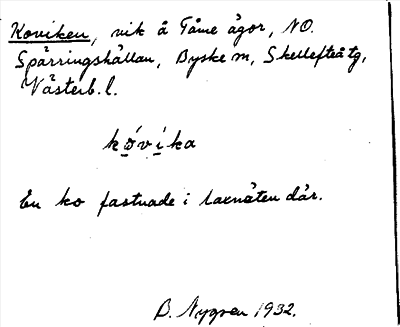 Koviken, vik å Tåme ägor, NO.
Spärringshällan, Byske sn, Skellefteå tg,
Västerb. l.
kövika
En ko fastnade i laxnäten där.
B. Nygren 1932.